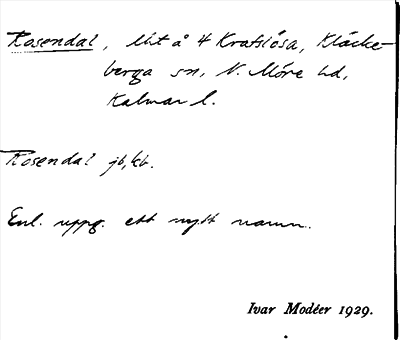 Rosendal, lht å 4 Kratslösa, Kläcke-
berga sn, N. Möre hd,
Kalmar l.
Rosendal jb, kb.
Enl. uppg. ett nytt namn.
Ivar Modéer 1929.